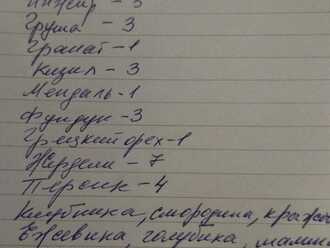 Инжир - 3
Груша - 3
Гранат - 1
Кизил - 3
Мендаль - 1
Фундук - 3
Грецкий орех - 1
Жердели - 7
Персик - 4
Клубника, смородина, крыжо
Ежевика, голубика, малин